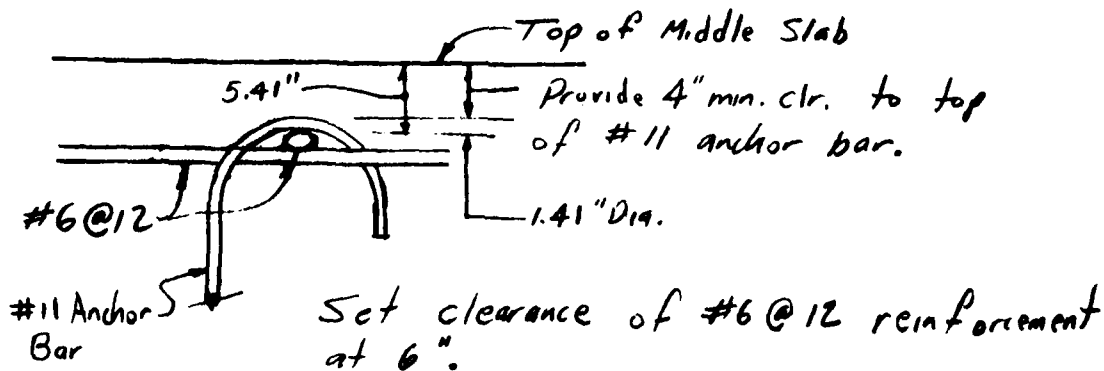 Top of Middle Slab
5.41"
Provide 4" min. clr. to top
of #11 anchor bar.
#6@12
1.41" Dia.
#11 Anchor
Bar
Set clearance of #6@12 reinforcement
at 6".